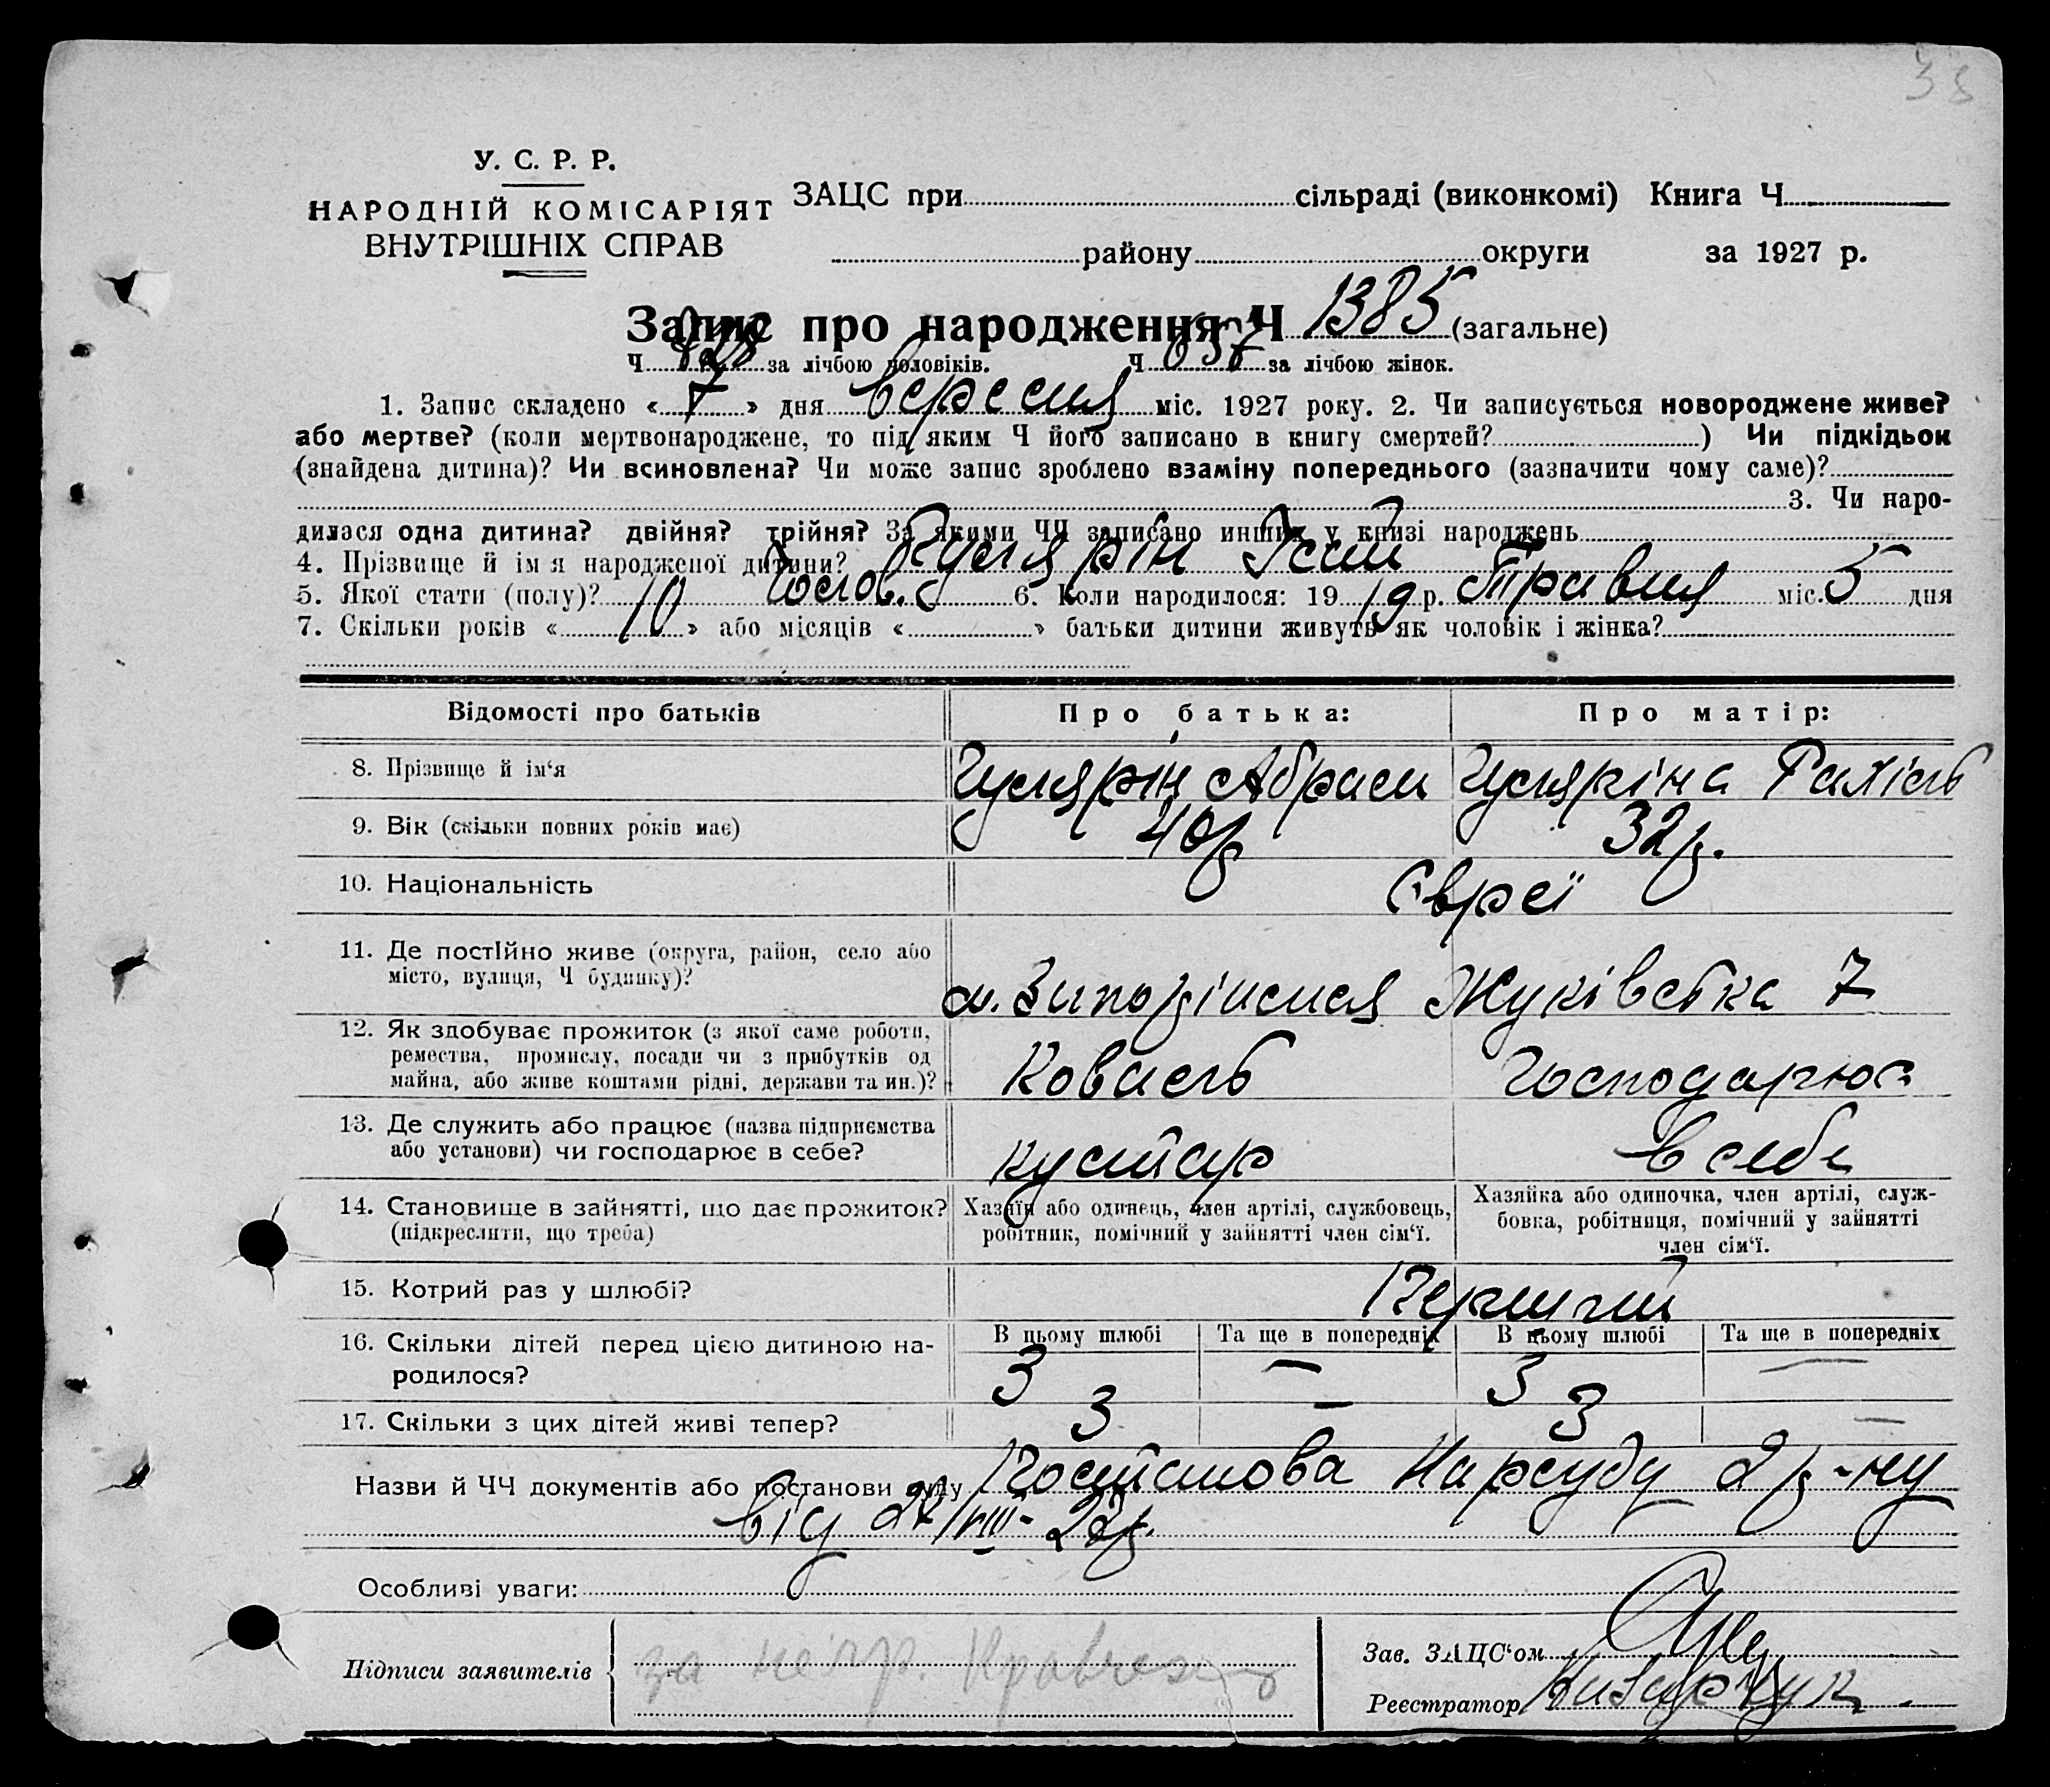 38
У. С. Р. Р.
НАРОДНІЙ КОМІСАРІЯТ
ВНУТРІШНІХ СПРАВ
ЗАЦС при сільраді (виконкомі) Книга Ч
району округи за 1927 р.
Запис про народження Ч 1385 (загальне)
Ч 728 за лічбою чоловіків. Ч 657 за лічбою жінок.
1. Запис складено « 7 » дня вересня міс. 1927 року. 2. Чи записується новороджене живе?
або мертве? (коли мертвонароджене, то під яким Ч його записано в книгу смертей? ) Чи підкідьок
(знайдена дитина)? Чи всиновлена? Чи може запис зроблено взаміну попереднього (зазначити чому саме)?
3. Чи наро-
дилася одна дитина? двійня? трійня? За якими ЧЧ записано инших у книзі народжень
4. Прізвище й ім я народженої дитини? Гуслярін Ісай
5. Якої стати (полу)? Чолов. 6. Коли народилося: 19 19 р. Травня міс. 5 дня
7. Скільки років « 10 » або місяців « » батьки дитини живуть як чоловік і жінка?
Відомості про батьків Про батька: Про матір:
8. Прізвище й ім‘я Гуслярін Абрам Гусляріна Рахіль
9. Вік (скільки повних років має) 40р 32р.
10. Національність Євреї
11. Де постійно живе (округа, район, село або
місто, вулиця, Ч будинку)? м. Запоріжжя Жуківська 7
12. Як здобуває прожиток (з якої саме роботи,
ремества, промислу, посади чи з прибутків од
майна, або живе коштами рідні, держави та ин.)? Коваль Господарює
13. Де служить або працює (назва підприємства
або установи) чи господарює в себе? кустар в себе
14. Становище в зайнятті, що дає прожиток?
(підкреслити, що треба)
Хазяїн або одинець, член артілі, службовець,
робітник, помічний у зайнятті член сім‘ї.
Хазяйка або одиночка, член артілі, служ-
бовка, робітниця, помічний у зайнятті
член сім‘ї.
15. Котрий раз у шлюбі? Перший
16. Скільки дітей перед цією дитиною на-
родилося?
В цьому шлюбі Та ще в попередніх В цьому шлюбі Та ще в попередніх
3 — 3 —
17. Скільки з цих дітей живі тепер? 3 — 3 —
Назви й ЧЧ документів або постанови суду Постанова Нарсуду 2 р-ну
від 27/VIII-22р.
Особливі уваги:
Підписи заявителів за непр.
Зав. ЗАЦС‘ом
Реєстратор